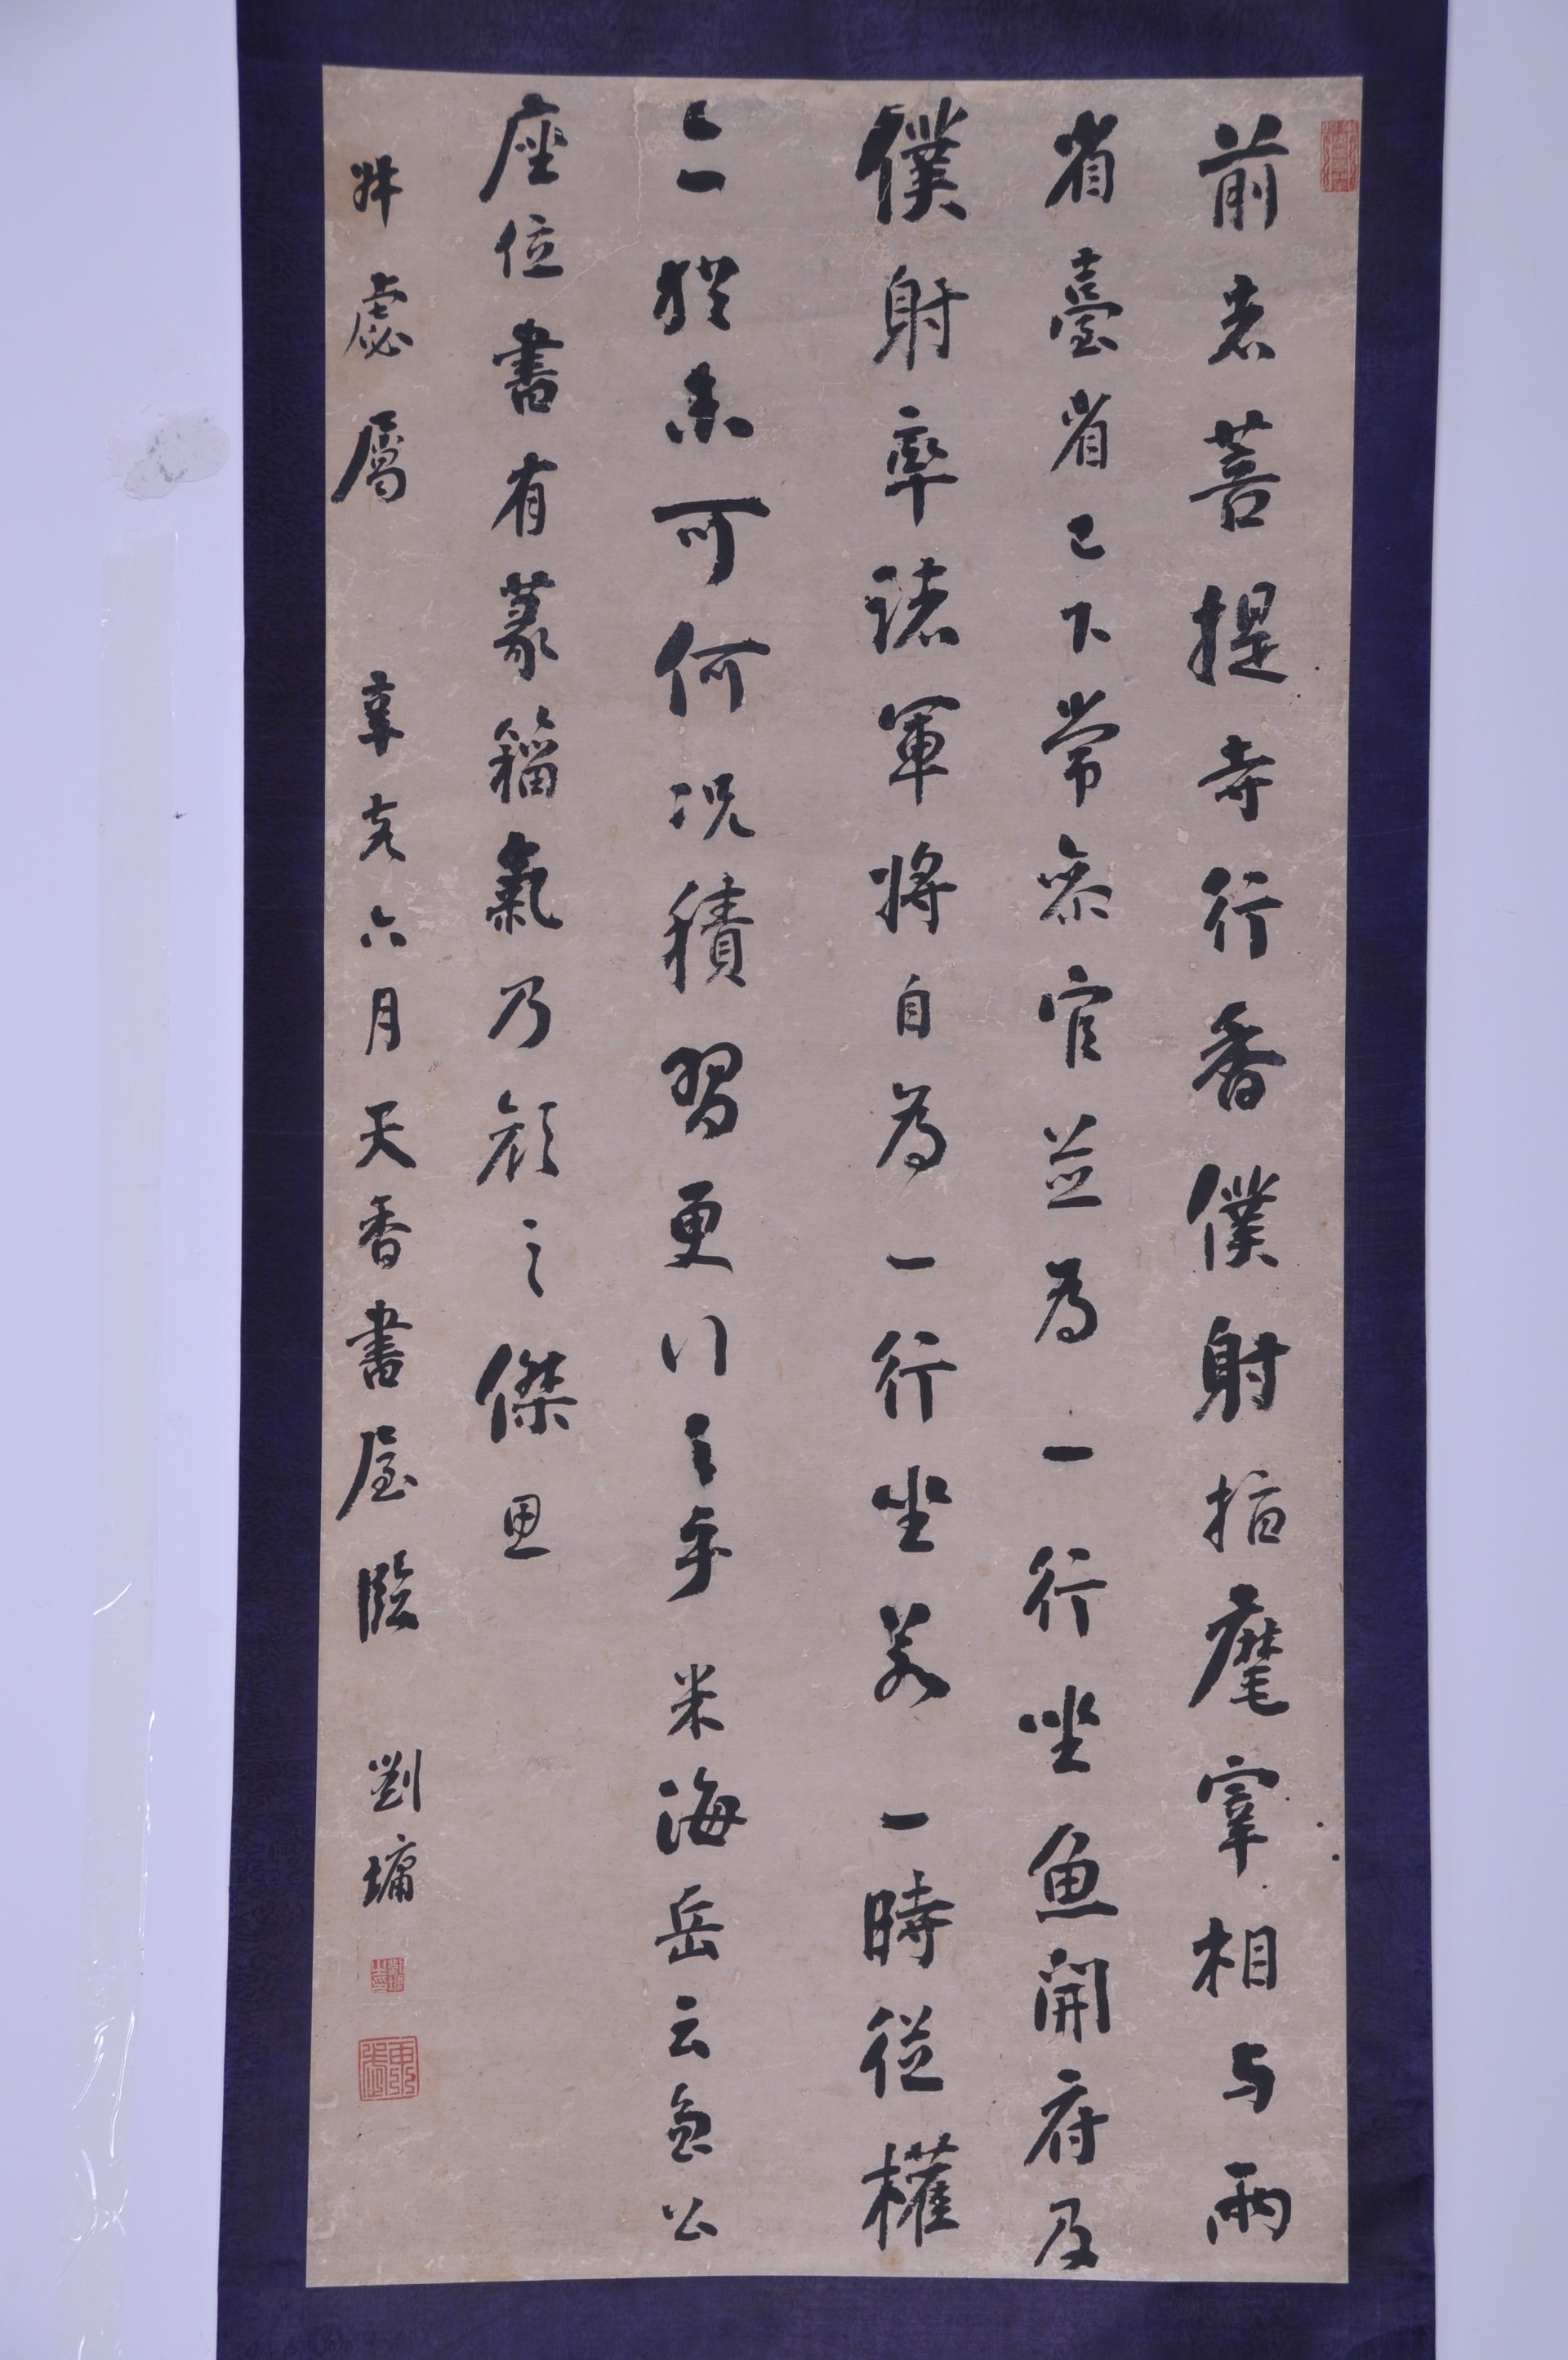 前者菩提寺行香僕射指麾宰相与兩
省臺省已下常參官並為一行坐魚開府及
僕射率諸軍將自為一行坐若一時從權
亦猶未可何況積習更行之乎米海岳云魯公
座位書有篆籀氣乃顏之傑思
叔虙屬 辛亥六月天香書屋臨 劉墉